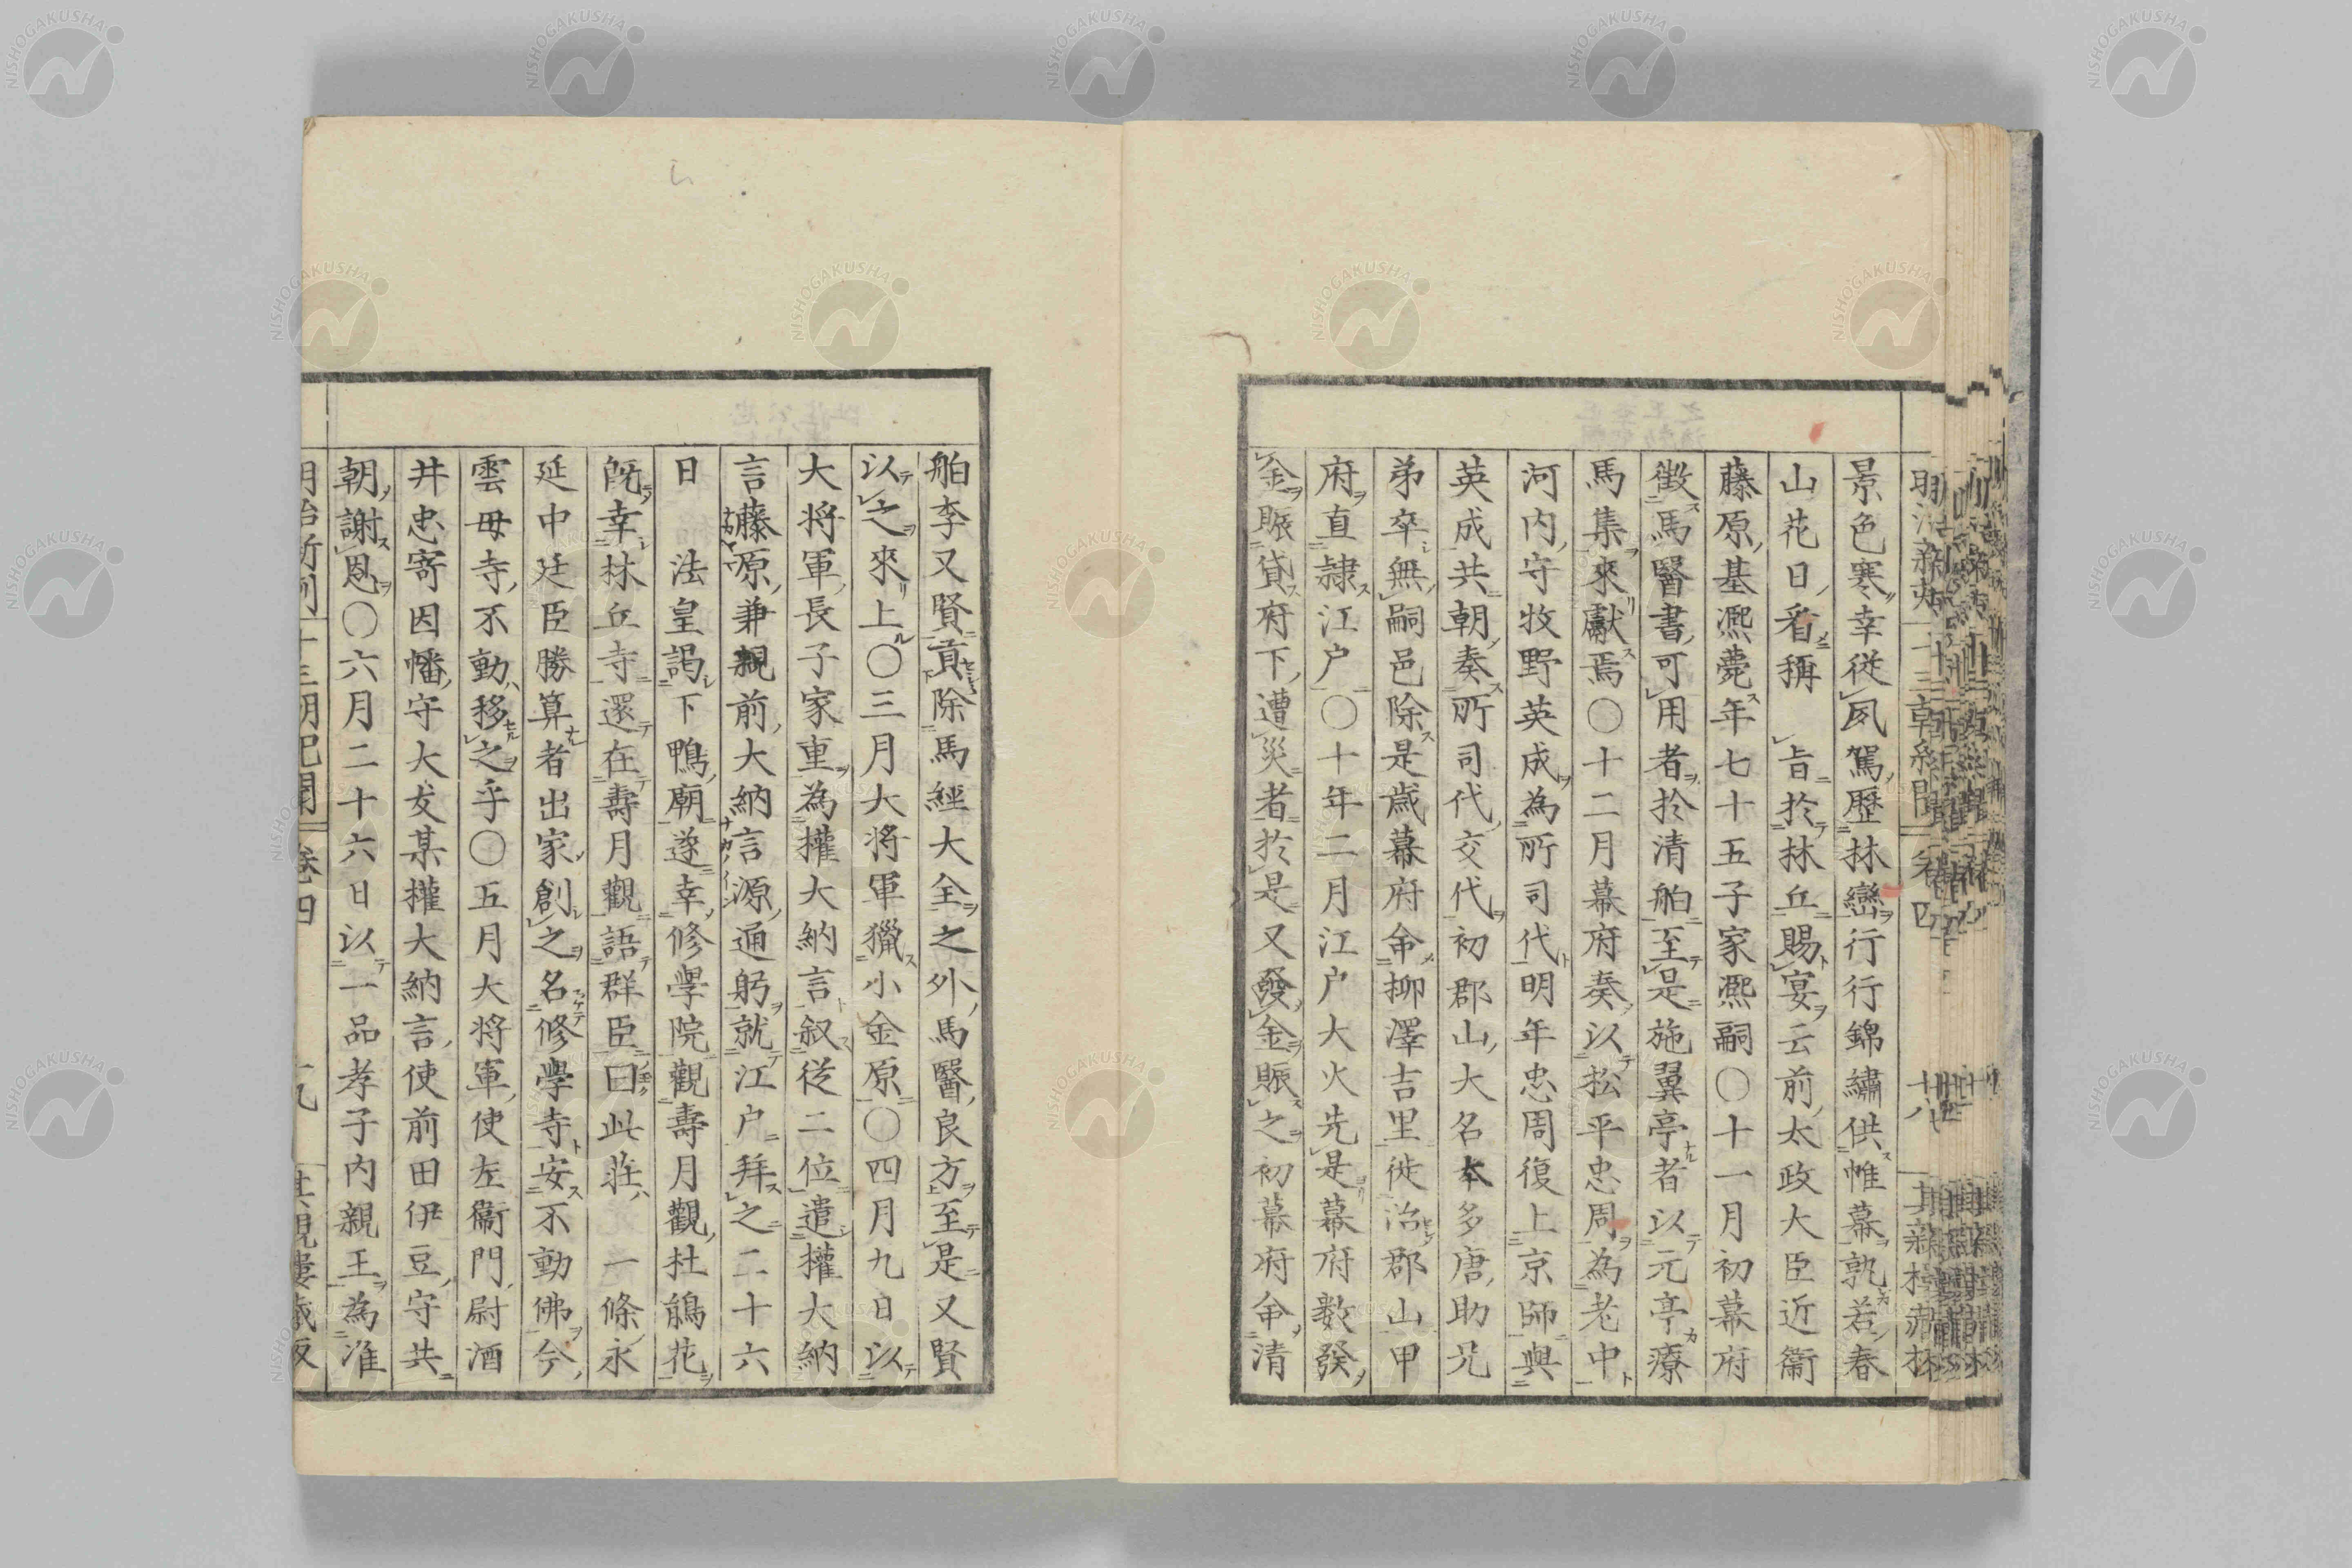 景色寒幸從夙駕歷林巒行行錦繡供帷幕孰若春
山花日看稱　旨於林丘賜宴云前太政大臣近衞
藤原基凞薨年七十五子家凞嗣〇十一月初幕府
徵馬醫書可用者於清舶至是施翼亭者以元亨療
馬集來獻焉〇十二月幕府奏以松平忠周為老中
河内守牧野英成為所司代明年忠周復上京師與
英成共朝奏所司代交代初郡山大名本多唐助兄
弟卒無嗣邑除是歲幕府命柳澤吉里徙治郡山甲
府直隷江户〇十年二月江户大火先是幕府數發
金賑貸府下遭災者於是又發金賑之初幕府命清
舶李又賢貢除馬經大全之外馬醫良方至是又賢
以之來上〇三月大将軍獵小金原〇四月九日以
大将軍長子家重為權大納言叙從二位遣權大納
言藤原兼親前大納言源通躬就江户拜之二十六
日　法皇謁下鴨廟遂幸修學院觀壽月觀杜鵑花
既幸林丘寺還在壽月觀語群臣曰此莊　一條永
延中廷臣勝算者出家創之名修學寺安不動佛今
雲母寺不動移之乎〇五月大将軍使左衞門尉酒
井忠寄因幡守大友某權大納言使前田伊豆守共
朝謝恩〇六月二十六日以一品孝子内親王為准
卷四
NISHOGAKUSHA